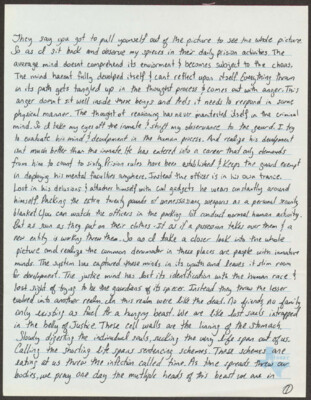 They say you got to pull yourself out of the picture to see the whole picture.
So as I sit back and observe my species in their daily prison activities. The
average mind doesnt comprehend its enviorment & becomes subject to the chaos.
The mind hasnt fully developed itself & cant reflect upon itself. Everything thrown
in its path gets tangled up in the thought process & comes out with anger. This
anger doesnt sit well inside these beings and feels it needs to respond in some
physical manner. The thought of reasoning has never manifested itself in the criminal
mind. So I take my eyes off the inmate & shift my observance to the guard. I try
to evaluate his mind & development in the human process. And realize his development
isnt much better than the inmate. He has entered into a career that only demands
from him to count to sixty. Prison rules have been established & keeps the guard exempt
from in deploying his mental faculties anywhere. Instead this officer is in his own trance.
Lost in his delusions & attaches himself with cool gadgets he wears constantly around
himself. Packing the extra twenty pounds of unnecessary weapons as a personal security
blanket. You can watch the officers in the parking lot conduct normal human activity.
But as soon as they put on their clothes it as if a possession takes over them & a
new entity is working them. So as I take a closer look into the whole
picture and realize the common denomiator in these places are people with immature
minds. The system has captured these minds in its youth and leaves it slim room
for development. The justice mind has lost its identification with the human race &
lost sight of trying to be the guardians of its species. Instead they throw the lesser
evolved into another realm. In this realm were like the dead. No friends no family
only existing as fuel for a hungry beast. We are like lost souls intrapped
in the belly of Justice. These cell walls are the lining of the stomach
slowly digesting the individual souls, sucking the very life span out of us.
Calling the shorting life spans sentencing schemes. These schemes are
eating at us threw the infliction called time. As time spreads threw our
bodies, we pray one day the multiple heads of this beast we are in
1